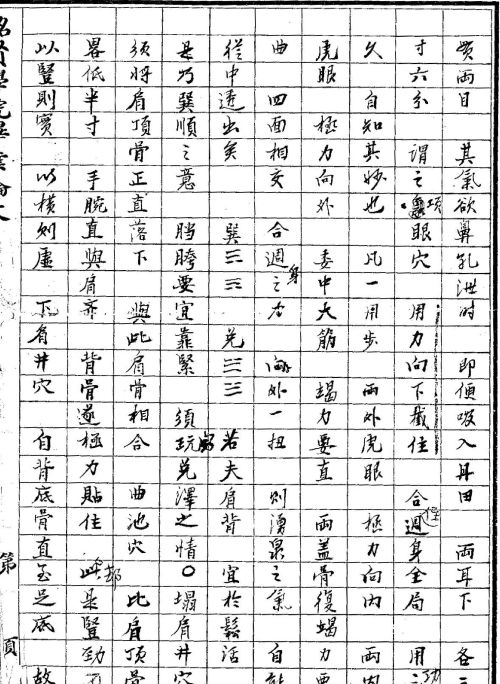 貫兩目　其氣欲鼻孔泄时　即便吸入耳田　兩耳下　各三
寸六分　謂之項眼穴　用力向下截住　合週身全局　用
久　自知其妙也　凡一用步　兩外虎眼　極力向內　兩内
虎眼　極力向外　委中大筋　竭力要直　兩蓋骨復竭力要
曲　四面相交　合週身之力　向外一扭　則湧泉之氣　自
從中透出矣　巽三三　兌三三三　若夫肩背　宜於鬆活
是乃巽順之意　膽胯要宜靠緊　須玩兌澤之情○塌肩井穴
須将肩頂骨正直落下　與此肩骨相合　曲池穴　比肩頂骨
畧低半寸　手腕直與肩齐　背骨遂極力貼住　此是豎勁
以豎則實　以橫则虛　下肩井穴　自背底骨直至足底　故
第　頁